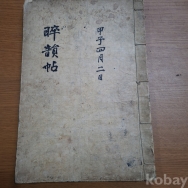 甲子四月二日
晬韻帖
kobay